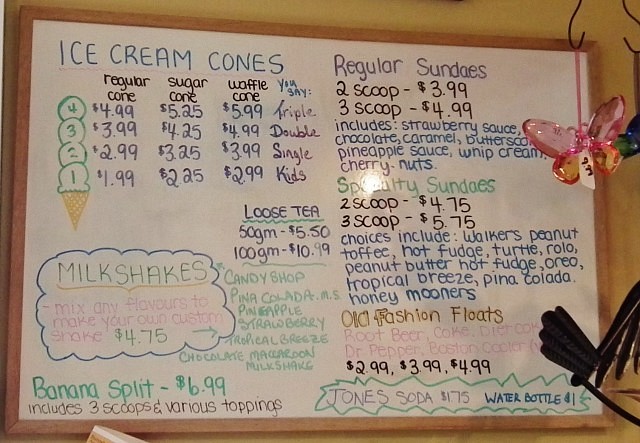 ICE CREAM CONES
regular cone sugar cone waffle cone You SAY:
4 $4.99 $5.25 $5.99 Triple
3 $3.99 $4.25 $4.99 Double
2 $2.99 $3.25 $3.99 Single
1 $1.99 $2.25 $2.99 Kids
LOOSE TEA
50gm - $5.50
100gm - $10.99
MILKSHAKES
- mix any flavours to
make your own custom
shake $4.75
CANDY SHOP
PINA COLADA - M.S.
PINEAPPLE
STRAWBERRY
TROPICAL BREEZE
CHOCOLATE MACCAROON
MILKSHAKE
Banana Split - $6.99
includes 3 scoops & various toppings
Regular Sundaes
2 SCOOP - $3.99
3 SCOOP - $4.99
includes: strawberry sauce,
chocolate, caramel,
pineapple sauce, whip cream,
cherry. nuts.
Specialty Sundaes
2 SCOOP - $4.75
3 SCOOP - $5.75
choices include: walkers peanut
toffee, hot fudge, turtle, rolo,
peanut butter hot fudge, oreo,
tropical breeze, pina colada.
honey mooners
Old Fashion Floats
Root Beer, Coke, Diet Coke
Dr Pepper, Boston Cooler
$2.99, $3.99, $4.99
JONES SODA $1.75 WATER BOTTLE $1